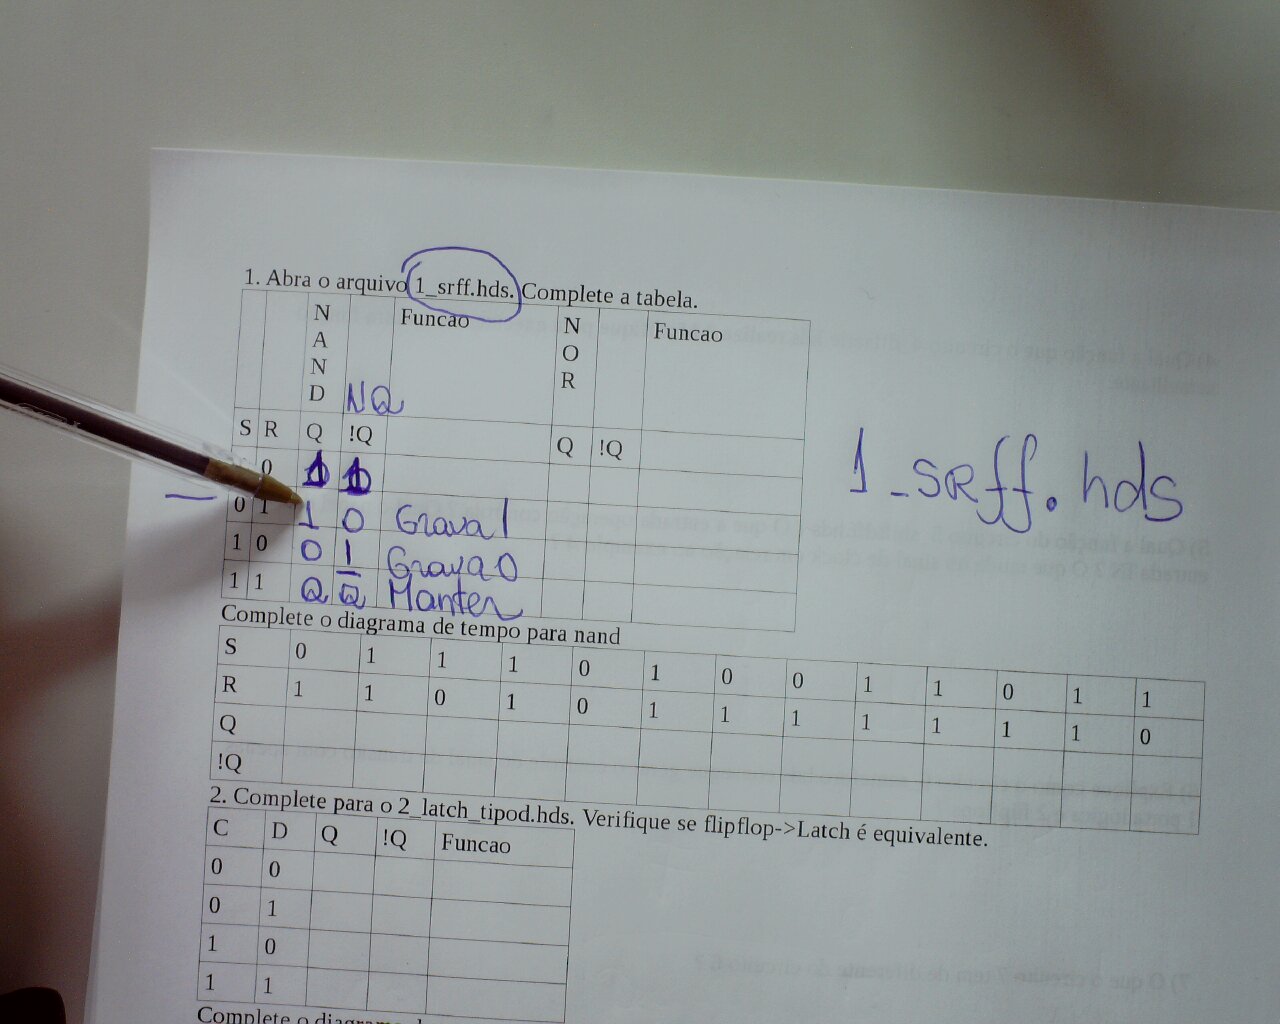 1. Abra o arquivo 1_srff.hds. Complete a tabela.
N A N D NQ Funcao N O R Funcao
S R Q !Q Q !Q
0 1 1
0 1 1 0 Grava 1
1 0 0 1 Grava 0
1 1 Q Q̅ Manter
1_srff.hds
Complete o diagrama de tempo para nand
S 0 1 1 1 0 1 0 0 1 1 0 1 1
R 1 1 0 1 0 1 1 1 1 1 1 1 0
Q
!Q
2. Complete para o 2_latch_tipod.hds. Verifique se flipflop->Latch é equivalente.
C D Q !Q Funcao
0 0
0 1
1 0
1 1
Complete o